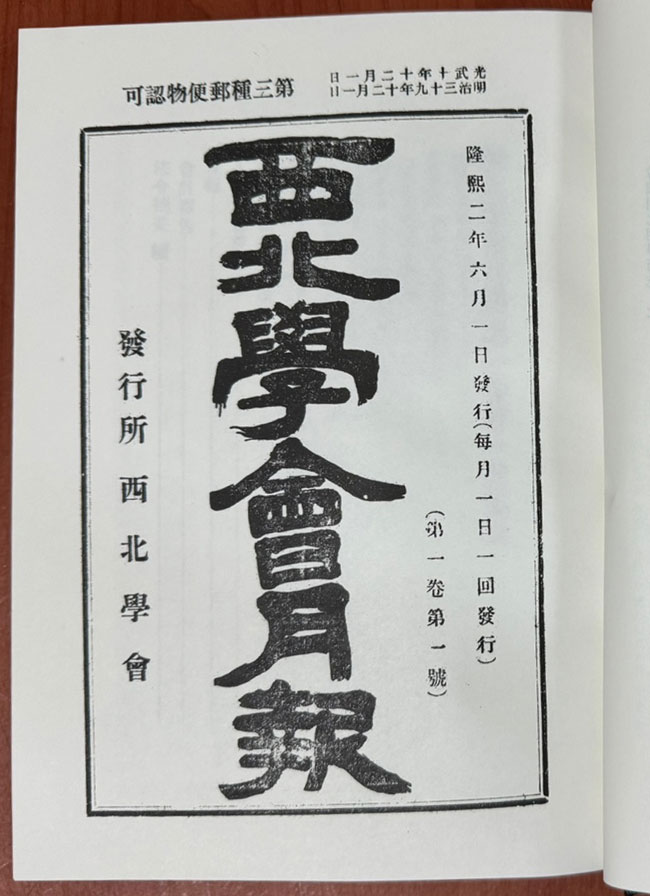 光武十年十二月一日
明治三十九年十二月一日
第三種郵便物認可
隆熙二年六月一日發行(每月一日一回發行)
(第一卷第一號)
西北學會月報
發行所 西北學會